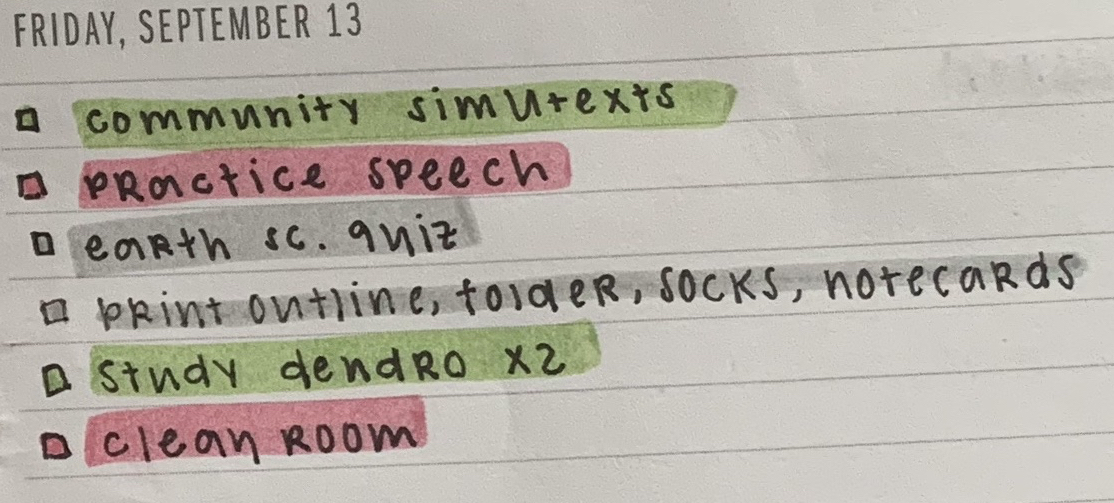 FRIDAY, SEPTEMBER 13
community simutexts
practice speech
earth sc. quiz
print outline, folder, socks, notecards
study dendro x2
clean room